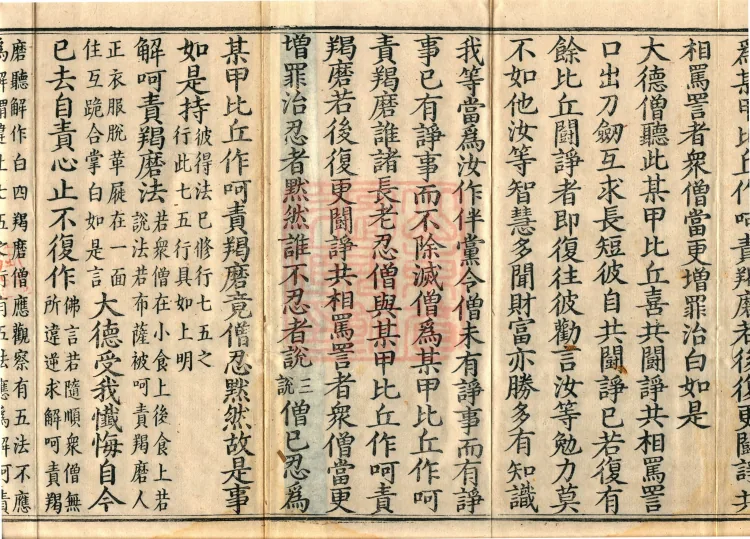 爲某甲比丘作呵責羯磨若後復更鬪諍共
相罵詈者衆僧當更增罪治白如是
大德僧聽此某甲比丘喜共鬪諍共相罵詈
口出刀劒互求長短彼自共鬪諍已若復有
餘比丘鬪諍者即復往彼勸言汝等勉力莫
不如他汝等智慧多聞財富亦勝多有知識
我等當爲汝作伴黨令僧未有諍事而有諍
事已有諍事而不除滅僧爲某甲比丘作呵
責羯磨誰諸長老忍僧與某甲比丘作呵責
羯磨若後復更鬪諍共相罵詈者衆僧當更
增罪治忍者默然誰不忍者說三說僧已忍爲
某甲比丘作呵責羯磨竟僧忍默然故是事
如是持
彼得法已修行七五之
行此七五行具如上明
解呵責羯磨法
若衆僧在小食上後食上若
說法若布薩被呵責羯磨人
正衣服脫革屣在一面
住互跪合掌白如是言
大德受我懺悔自今
已去自責心止不復作
佛言若隨順衆僧無
所違逆求解呵責羯
磨聽解作白四羯磨僧應觀察有五法不應
爲解謂違上七五之行有五法應爲解呵責